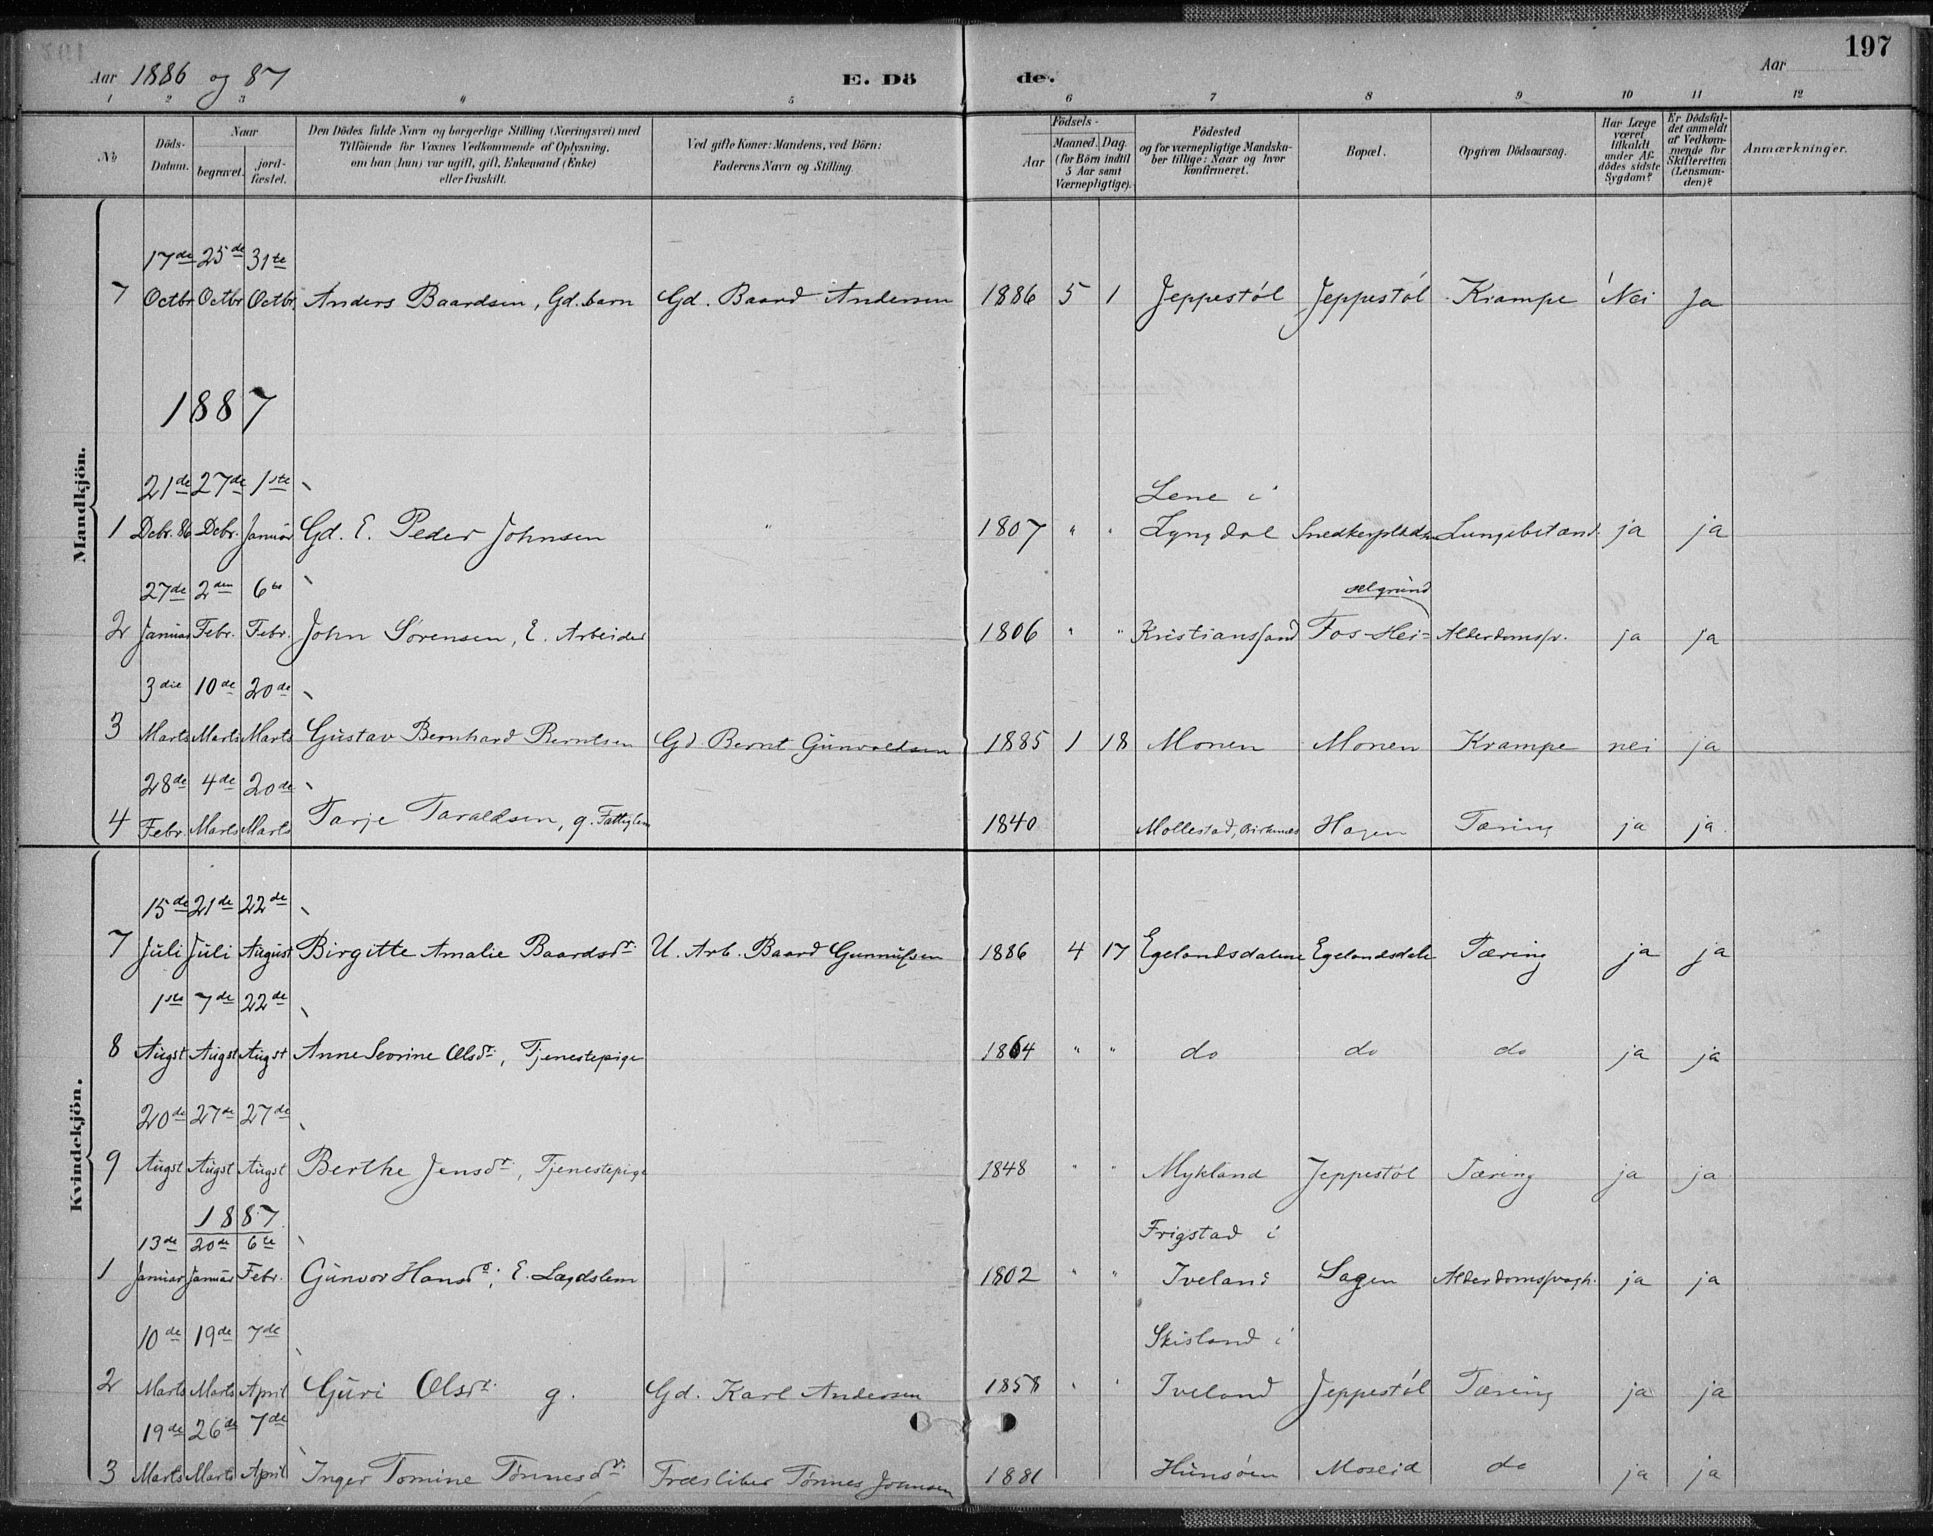 197
Aar 1886 og 87 E. Dö de. Aar
1 2 3 4 5 6 7 8 9 10 11 12
No
Döds-Datum.
Naar
begravet.
jord-fæstet.
Den Dödes fulde Navn og borgerlige Stilling (Næringsvei) med
Tilföiende for Voxnes Vedkommende af Oplysning,
om han (hun) var ugift, gift, Enkemand (Enke)
eller fraskilt.
Ved gifte Koner: Mandens, ved Börn:
Faderens Navn og Stilling.
Födsels-
Aar
Maaned. Dag.
(for Börn indtil
5 Aar samt
Værnepligtige).
Födested
og for værnepligtige Mandska-
ber tillige: Naar og hvor
konfirmeret.
Bopæl.
Opgiven Dödsaarsag.
Har Læge
været
tilkaldt
under Af-
dödes sidste
Sygdom?
Er Dödsfal-
det anmeldt
af Vedkom-
mende for
Skifteretten
(Lensman-
den)?
Anmærkninger.
Mandkjön.
17de 25de 31te
7 Octbr Octbr Octbr. Anders Baardsen, Gd. barn Gd. Baard Andersen 1886 5 1 Jeppestöl Jeppestöl Krampe Nei Ja
1887
21de 27de 1ste Lene i
1 Debr. 86 Debr. Januar Gd. E. Peder Johnsen " 1807 " " Lyngdal Snedkerpladsen Lungebetænd. ja ja
27de 2den 6te ælgrund
2 Januar Febr. Febr. John Sørensen, E. Arbeider 1806 " " Kristianssand Fos-Hei= Alderdomssv. ja ja
3die 10de 20de
3 Marts Marts Marts Gustav Bernhard Berntsen Gd. Bernt Gunvaldsen 1885 1 18 Monen Monen Krampe nei ja
28de 4de 20de
4 Febr. Marts Marts Tarje Taraldsen, g. Fattiglem 1840 Mollestad, Birkenes Hagen Tæring ja ja.
Kvindekjön.
15de 21de 22de
7 Juli Juli August Birgitte Amalie Baardsdr. U. Arb. Baard Gunnufsen 1886 4 17 Egelandsdalene Egelandsdale Tæring ja ja
1ste 7de 22de
8 Augst Augst Augst Anne Severine Olsdr., Tjenestepige 1864 " " do do do ja ja
20de 27de 27de
9 Augst Augst Augst Berthe Jensdr., Tjenestepige 1848 " " Mykland Jeppestöl Tæring ja ja
1887
13de 20de 6te Frigstad i
1 Januar Januar Febr. Gunvor Hansdr., E. Lægdslem " 1802 " " Iveland Lagen Alderdomssvagh. ja ja
10de 19de 7de Skisland i
2 Marts Marts April Guri Olsdr. g. Gd. Karl Andersen 1858 " " Iveland Jeppestöl Tæring ja ja
19de 26de 7de
3 Marts Marts April Inger Tomine Tønnesdr. Tønnes Johnsen 1881 Hunsøen Moseid do ja ja